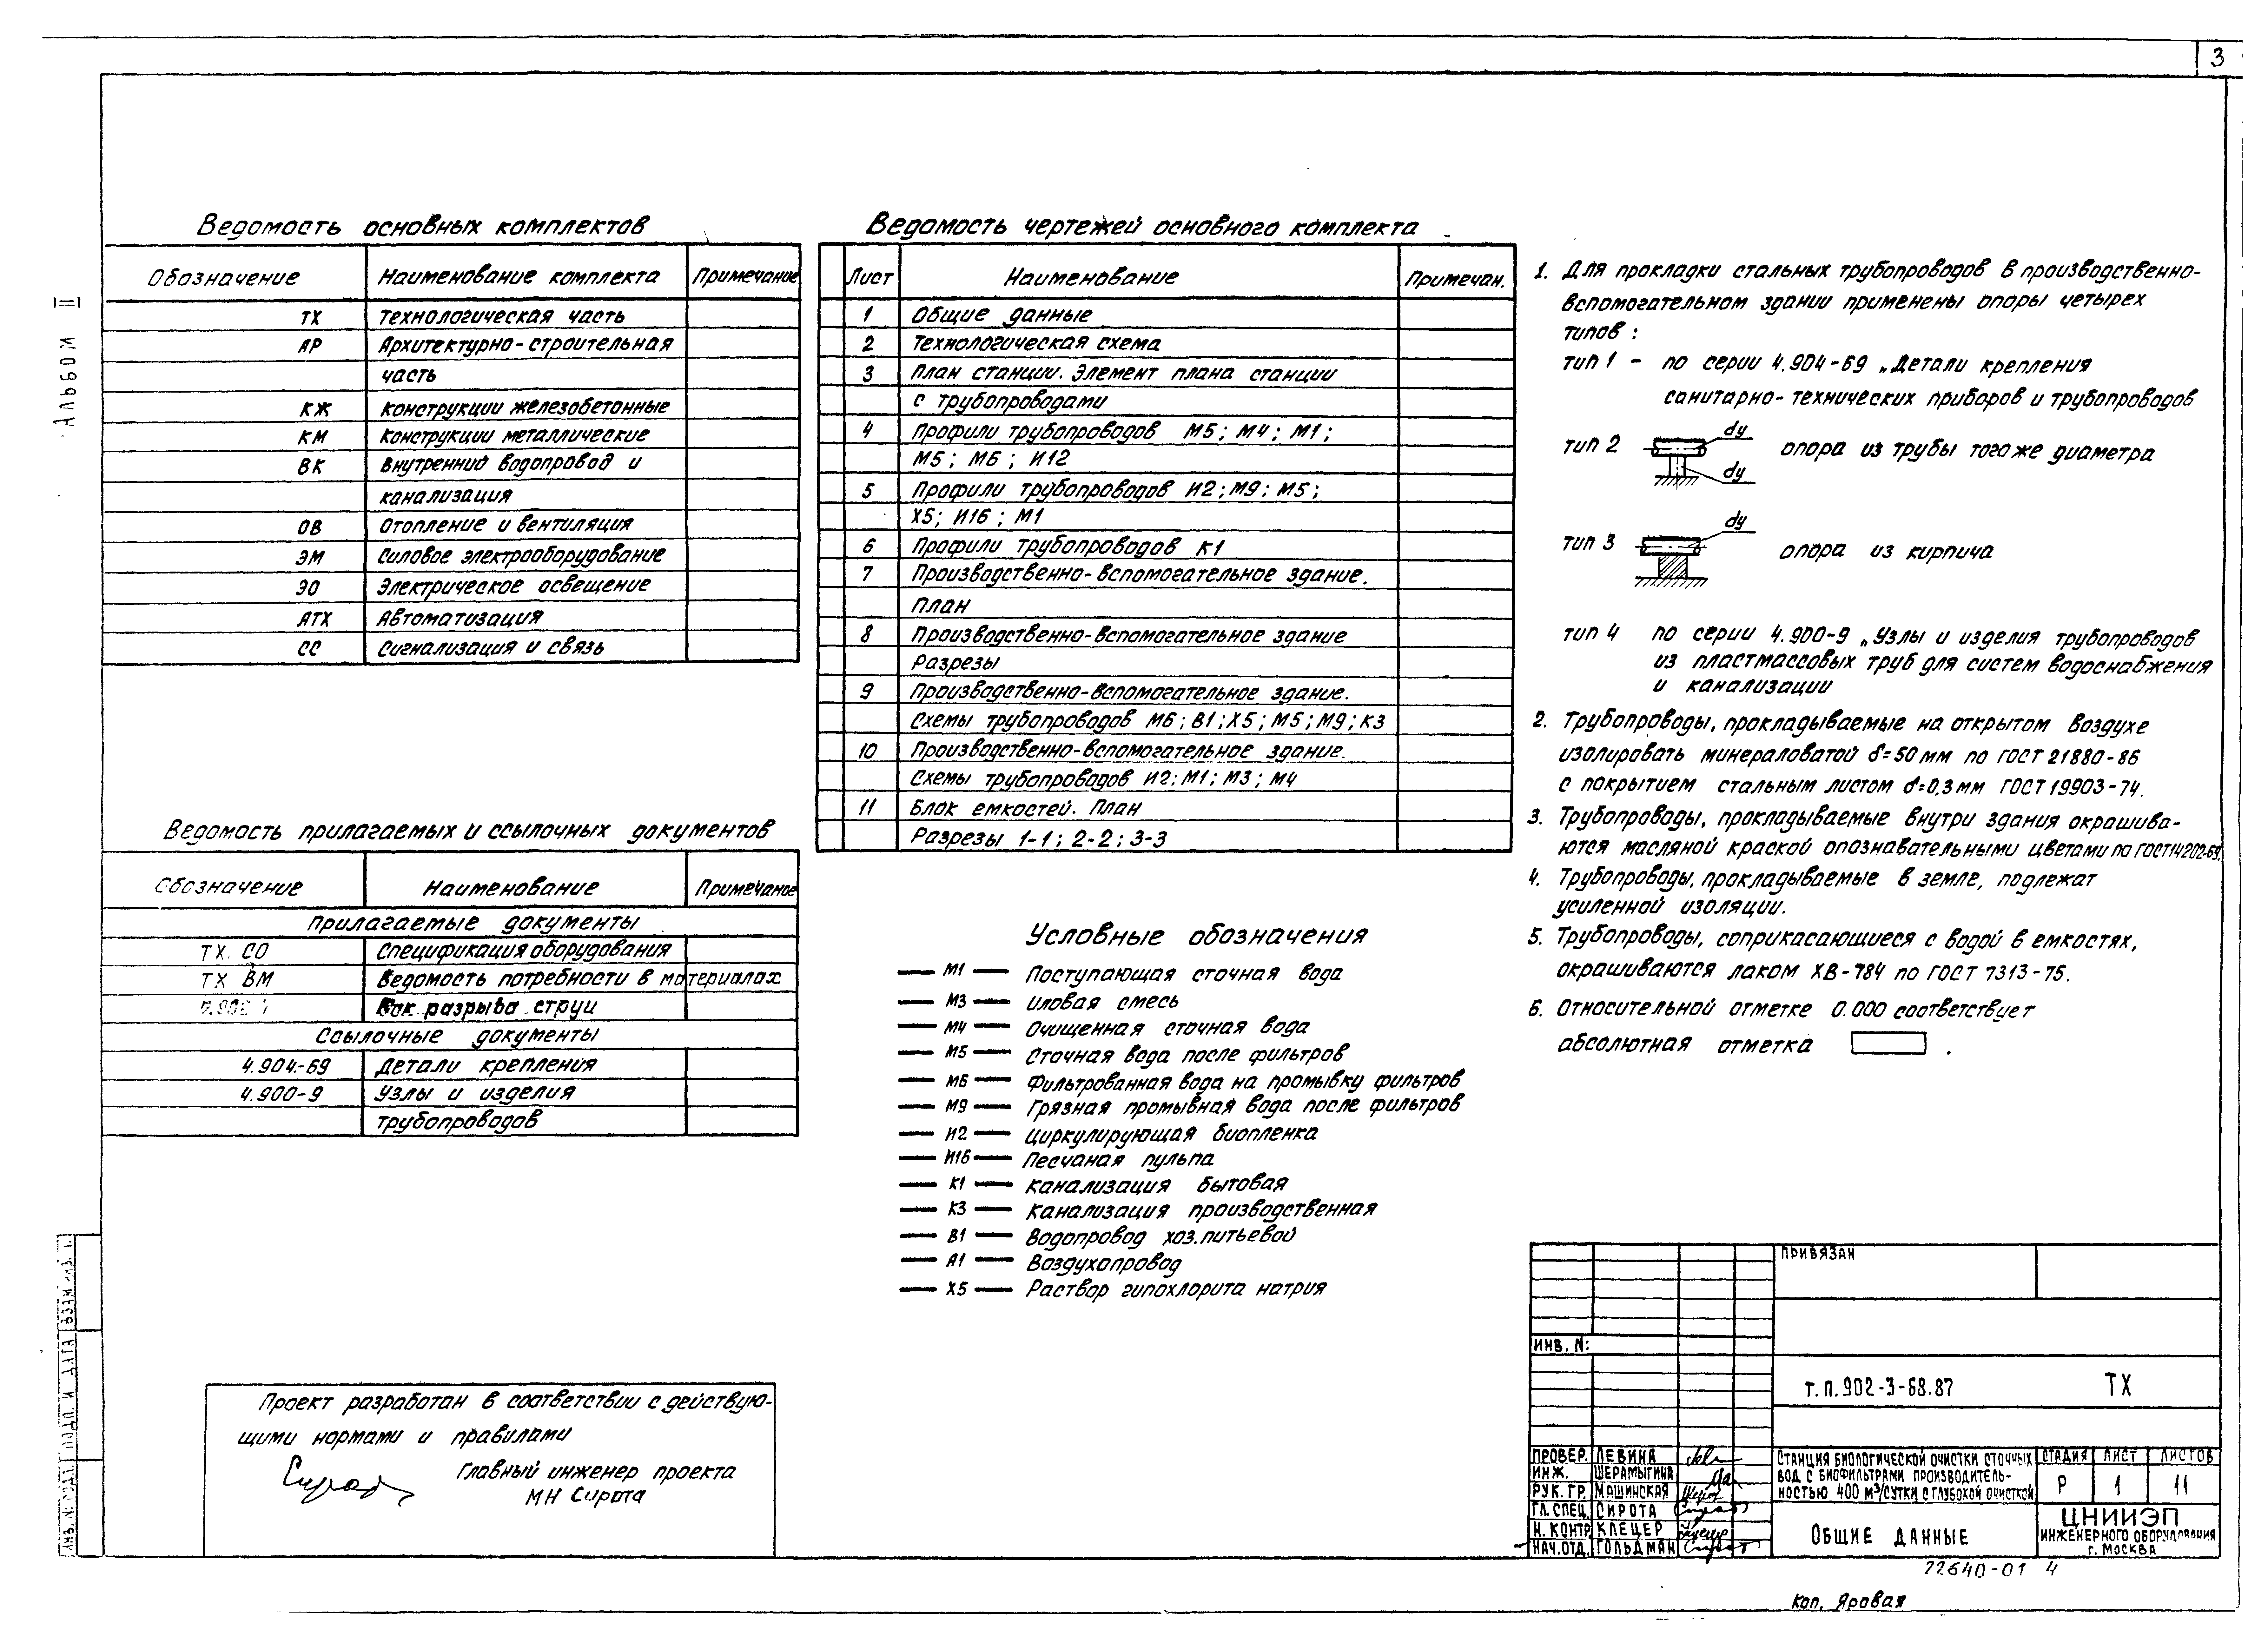 3
Альбом II
Ведомость основных комплектов
Обозначение Наименование комплекта Примечание
ТХ Технологическая часть
АР Архитектурно-строительная
часть
КЖ Конструкции железобетонные
КМ Конструкции металлические
ВК Внутренний водопровод и
канализация
ОВ Отопление и вентиляция
ЭМ Силовое электрооборудование
ЭО Электрическое освещение
АТХ Автоматизация
СС Сигнализация и связь
Ведомость прилагаемых и ссылочных документов
Обозначение Наименование Примечание
Прилагаемые документы
ТХ. СО Спецификация оборудования
ТХ ВМ Ведомость потребности в материалах
Бак разрыва струи
Ссылочные документы
4.904-69 Детали крепления
4.900-9 Узлы и изделия
трубопроводов
Ведомость чертежей основного комплекта
Лист Наименование Примечан.
1 Общие данные
2 Технологическая схема
3 План станции. Элемент плана станции
с трубопроводами
4 Профили трубопроводов М5; М4; М1;
М5; М6; И12
5 Профили трубопроводов И2; М9; М5;
Х5; И16; М1
6 Профили трубопроводов К1
7 Производственно-вспомогательное здание.
План
8 Производственно-вспомогательное здание
Разрезы
9 Производственно-вспомогательное здание.
Схемы трубопроводов М6; В1; Х5; М5; М9; К3
10 Производственно-вспомогательное здание.
Схемы трубопроводов И2; М1; М3; М4
11 Блок емкостей. План
Разрезы 1-1; 2-2; 3-3
Условные обозначения
М1 Поступающая сточная вода
М3 Иловая смесь
М4 Очищенная сточная вода
М5 Сточная вода после фильтров
М6 Фильтрованная вода на промывку фильтров
М9 Грязная промывная вода после фильтров
И2 Циркулирующая биопленка
И16 Песчаная пульпа
К1 Канализация бытовая
К3 Канализация производственная
В1 Водопровод хоз.питьевой
А1 Воздухопровод
Х5 Раствор гипохлорита натрия
1. Для прокладки стальных трубопроводов в производственно-
вспомогательном здании применены опоры четырех
типов:
тип 1 - по серии 4.904-69 „Детали крепления
санитарно-технических приборов и трубопроводов
dу
тип 2 опора из трубы тогоже диаметра
dу
dу
тип 3 опора из кирпича
тип 4 по серии 4.900-9 „Узлы и изделия трубопроводов
из пластмассовых труб для систем водоснабжения
и канализации
2. Трубопроводы, прокладываемые на открытом воздухе
изолировать минераловатой δ=50 мм по ГОСТ 21880-86
с покрытием стальным листом δ=0,3 мм ГОСТ 19903-74.
3. Трубопроводы, прокладываемые внутри здания окрашива-
ются масляной краской опознавательными цветами по ГОСТ 14202-69.
4. Трубопроводы, прокладываемые в земле, подлежат
усиленной изоляции.
5. Трубопроводы, соприкасающиеся с водой в емкостях,
окрашиваются лаком ХВ-784 по ГОСТ 7313-75.
6. Относительной отметке 0.000 соответствует
абсолютная отметка .
Проект разработан в соответствии с действую-
щими нормами и правилами
Главный инженер проекта
МН Сирота
ВЗАМ. ИНВ. N
ПОДП. И ДАТА
ИНВ. N ПОДЛ.
ПРИВЯЗАН
ИНВ. N:
Т.П. 902-3-68.87 ТХ
ПРОВЕР. ЛЕВИНА
ИНЖ. ШЕРАМЫГИНА
РУК. ГР. МАШИНСКАЯ
ГЛ. СПЕЦ. СИРОТА
Н. КОНТР. КЛЕЦЕР
НАЧ. ОТД. ГОЛЬДМАН
СТАНЦИЯ БИОЛОГИЧЕСКОЙ ОЧИСТКИ СТОЧНЫХ
ВОД С БИОФИЛЬТРАМИ ПРОИЗВОДИТЕЛЬ-
НОСТЬЮ 400 М³/СУТКИ С ГЛУБОКОЙ ОЧИСТКОЙ
СТАДИЯ ЛИСТ ЛИСТОВ
Р 1 11
ОБЩИЕ ДАННЫЕ
ЦНИИЭП
ИНЖЕНЕРНОГО ОБОРУДОВАНИЯ
Г. МОСКВА
22640-01 4
Коп. Яровая